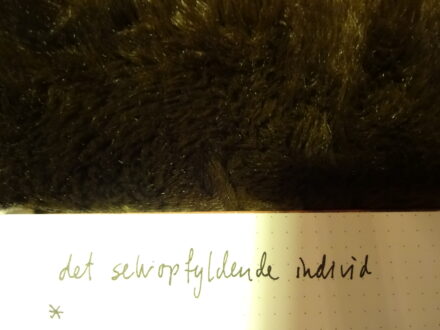 det selvopfyldende individ
*